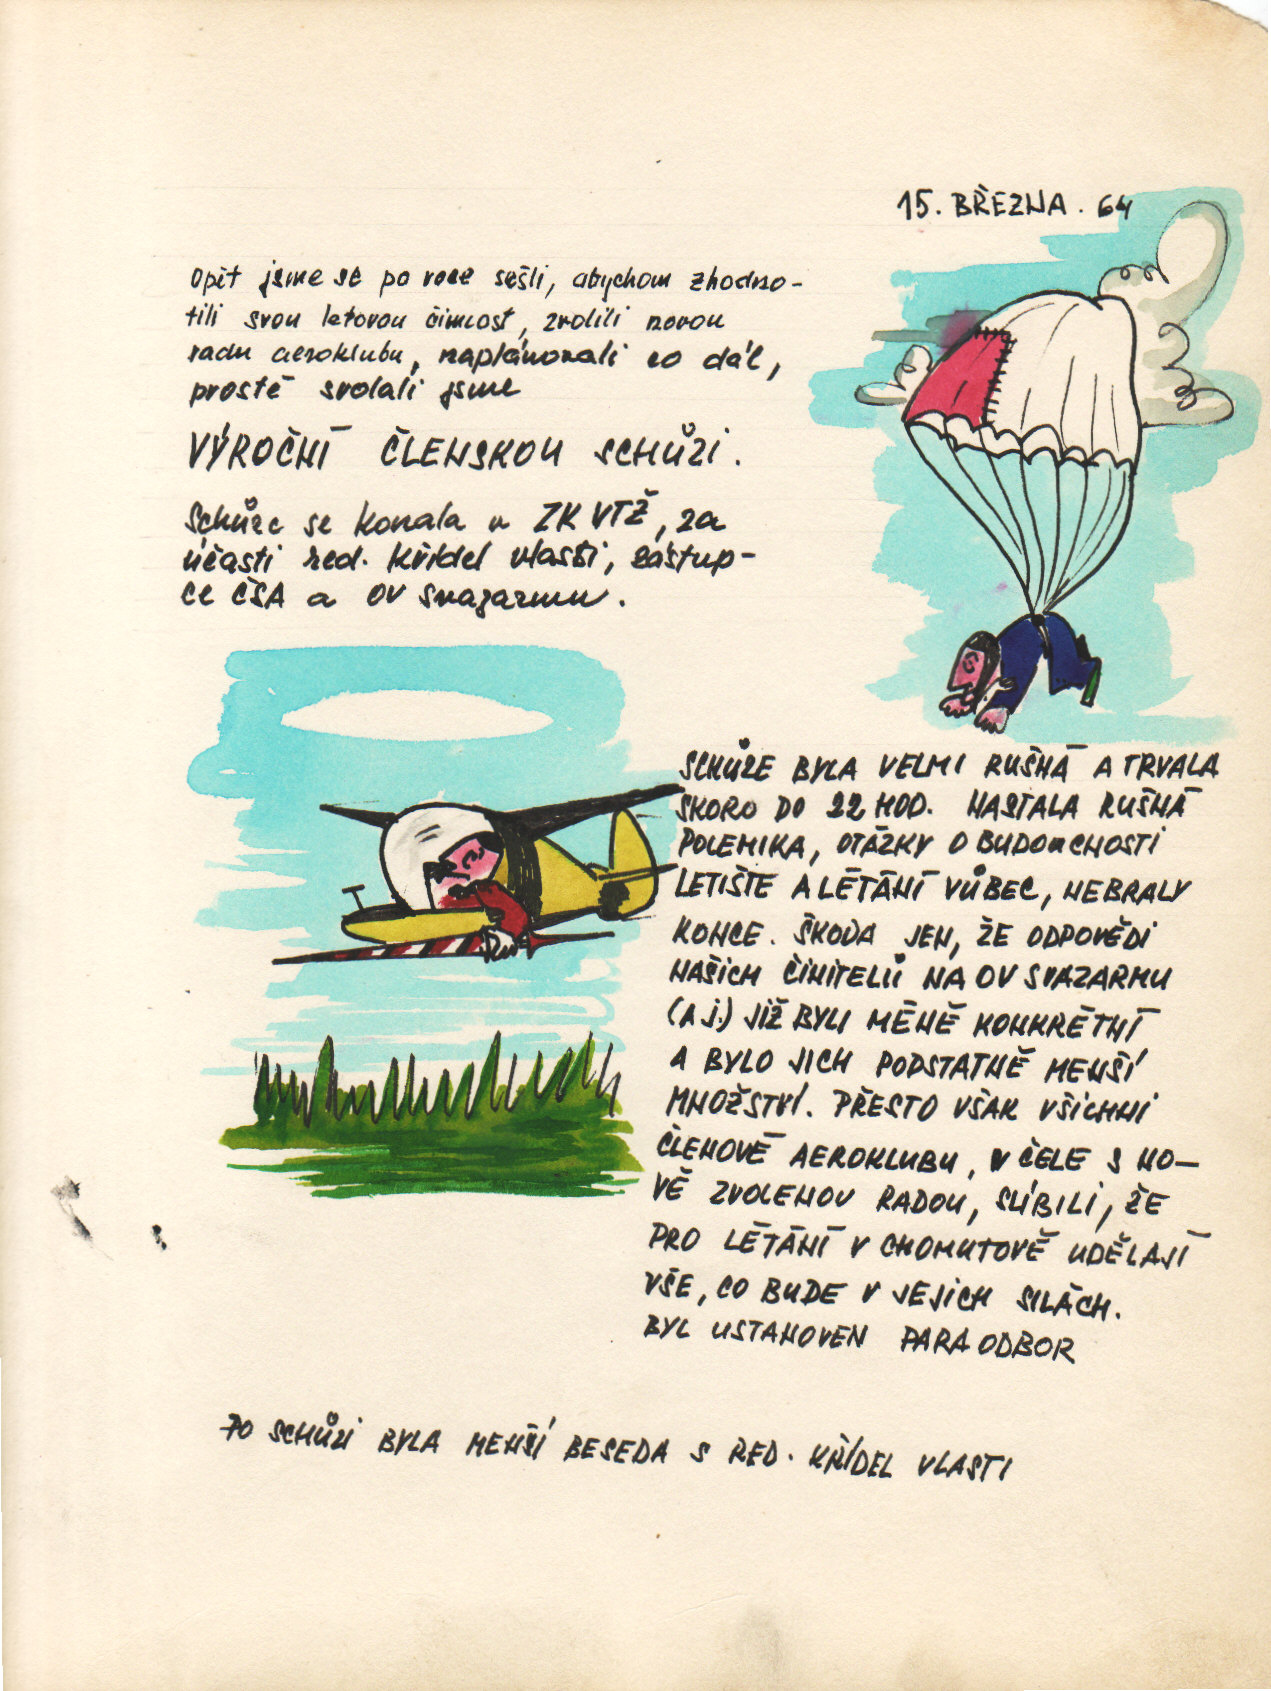 15. BŘEZNA. 64
Opět jsme se po roce sešli, abychom zhodno-
tili svou letovou činnost, zvolili novou
radu aeroklubu, naplánovali co dál,
prostě svolali jsme
VÝROČNÍ ČLENSKOU SCHŮZI.
Schůze se konala v ZK VTŽ, za
účasti red. Křídel vlasti, zástup-
ce ČSA a OV Svazarmu.
SCHŮZE BYLA VELMI RUŠNÁ A TRVALA
SKORO DO 22 HOD. NASTALA RUŠNÁ
POLEMIKA, OTÁZKY O BUDOUCNOSTI
LETIŠTĚ A LÉTÁNÍ VŮBEC, NEBRALY
KONCE. ŠKODA JEN, ŽE ODPOVĚDI
NAŠICH ČINITELŮ NA OV SVAZARMU
(A J.) JIŽ BYLI MÉNĚ KONKRÉTNÍ
A BYLO JICH PODSTATNĚ MENŠÍ
MNOŽSTVÍ. PŘESTO VŠAK VŠICHNI
ČLENOVÉ AEROKLUBU, V ČELE S NO-
VĚ ZVOLENOU RADOU, SLÍBILI, ŽE
PRO LÉTÁNÍ V CHOMUTOVĚ UDĚLAJÍ
VŠE, CO BUDE V JEJICH SILÁCH.
BYL USTANOVEN PARA ODBOR
PO SCHŮZI BYLA MENŠÍ BESEDA S RED. KŘÍDEL VLASTI